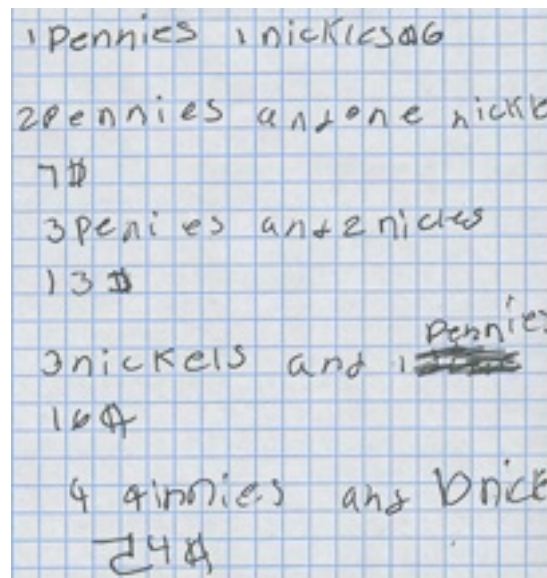 1 pennies 1 nickles 6
2 pennies and one nickle
7
3 penies and 2 nicles
13
3 nickels and 1 pennies
16
4 and nick
24